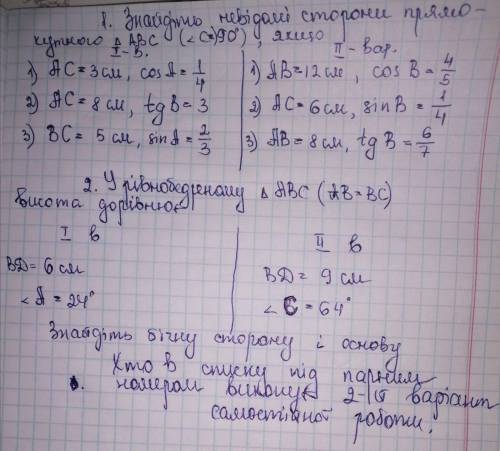 1. Знайдіть невідомі сторони прямо-
кутного △ ABC (∠C=90°), якщо
I - В.
1) AC = 3 см, cos A = 1/4
2) AC = 8 см, tg B = 3
3) BC = 5 см, sin A = 2/3
II - вар.
1) AB = 12 см, cos B = 4/5
2) AC = 6 см, sin B = 1/4
3) AB = 8 см, tg B = 6/7
2. У рівнобедреному △ ABC (AB = BC)
висота дорівнює
I в
BD = 6 см
∠A = 24°
II в
BD = 9 см
∠C = 64°
Знайдіть бічну сторону і основу
Хто в списку під парним
номером виконує 2-ий варіант
самостійної роботи.